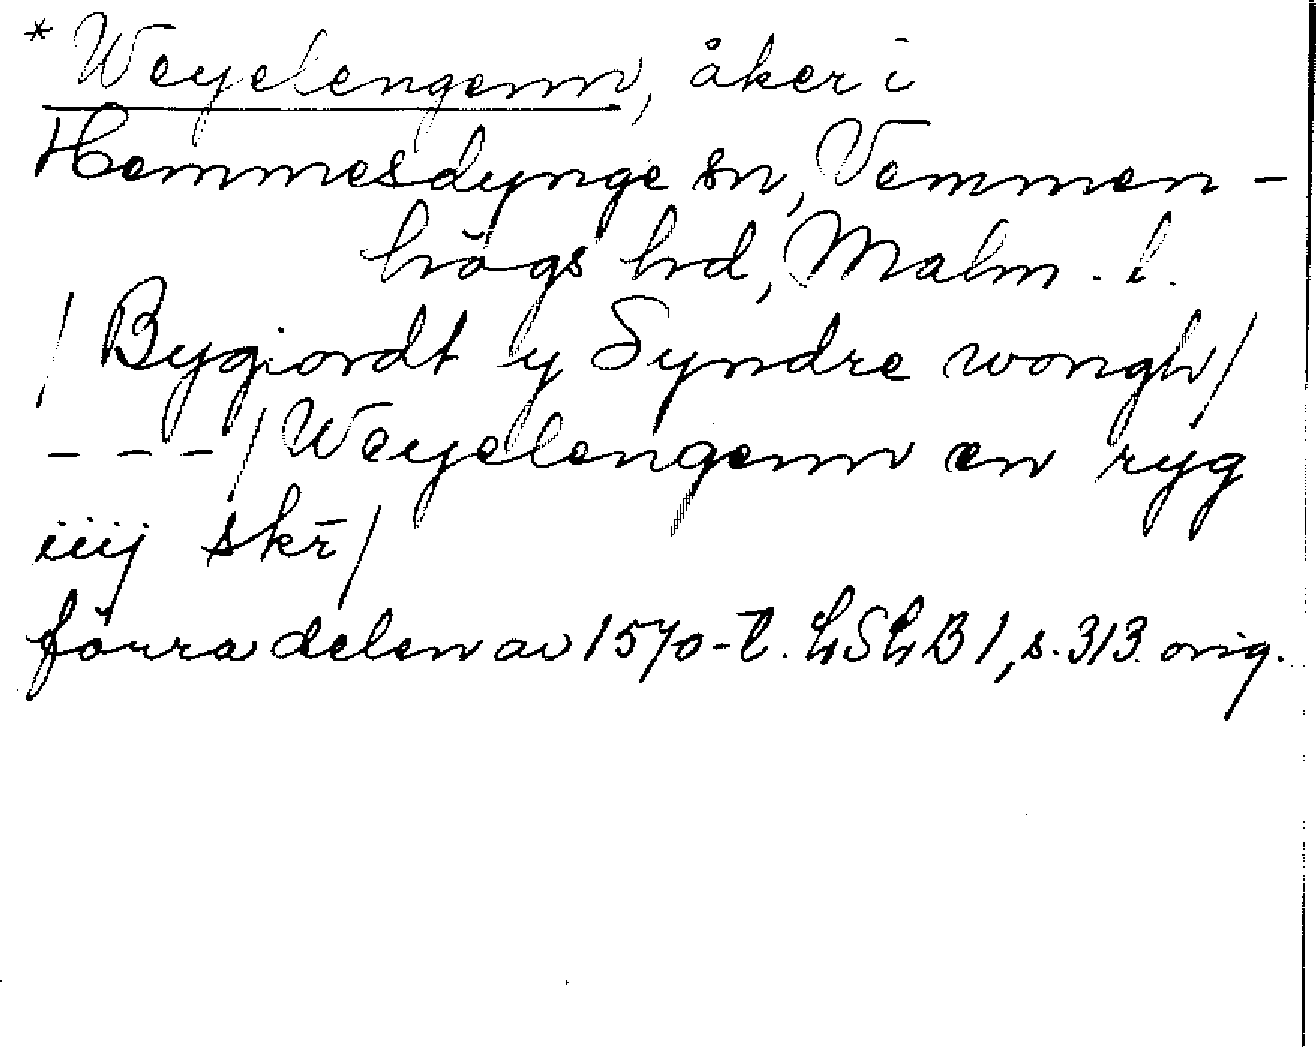 * Weyelengenn, åker i
Hemmesdynge sn, Vemmen-
högs hd, Malm. l.
/ Bygiordt y Syndre wongh /
--- / Weyelengenn en ryg
iiij skr̄ /
förra delen av 1570-t. LSLB 1, s. 313. orig.